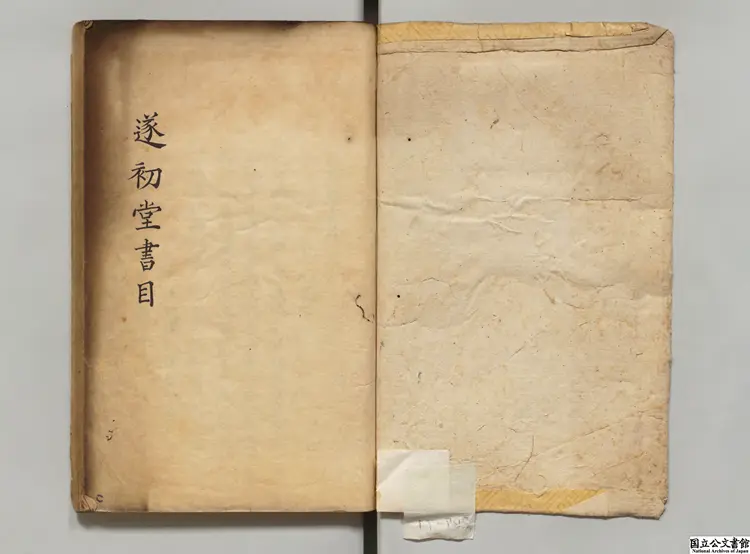 遂初堂書目
国立公文書館
National Archives of Japan